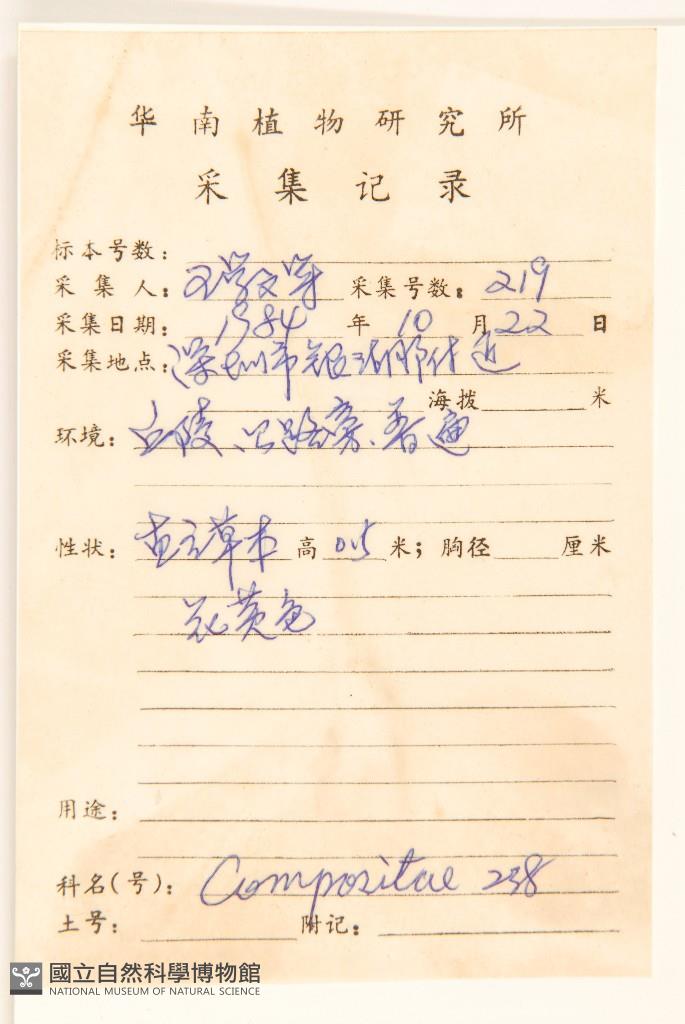 华南植物研究所
采集记录
标本号数：
采集人：王学文等 采集号数：219
采集日期：1984年10月22日
采集地点：深圳市银湖附近
海拨 米
环境：丘陵、公路旁、普通
性状：直立草本 高0.5米；胸径 厘米
花黄色
用途：
科名(号)：Compositae 238
土号： 附记：
國立自然科學博物館
NATIONAL MUSEUM OF NATURAL SCIENCE